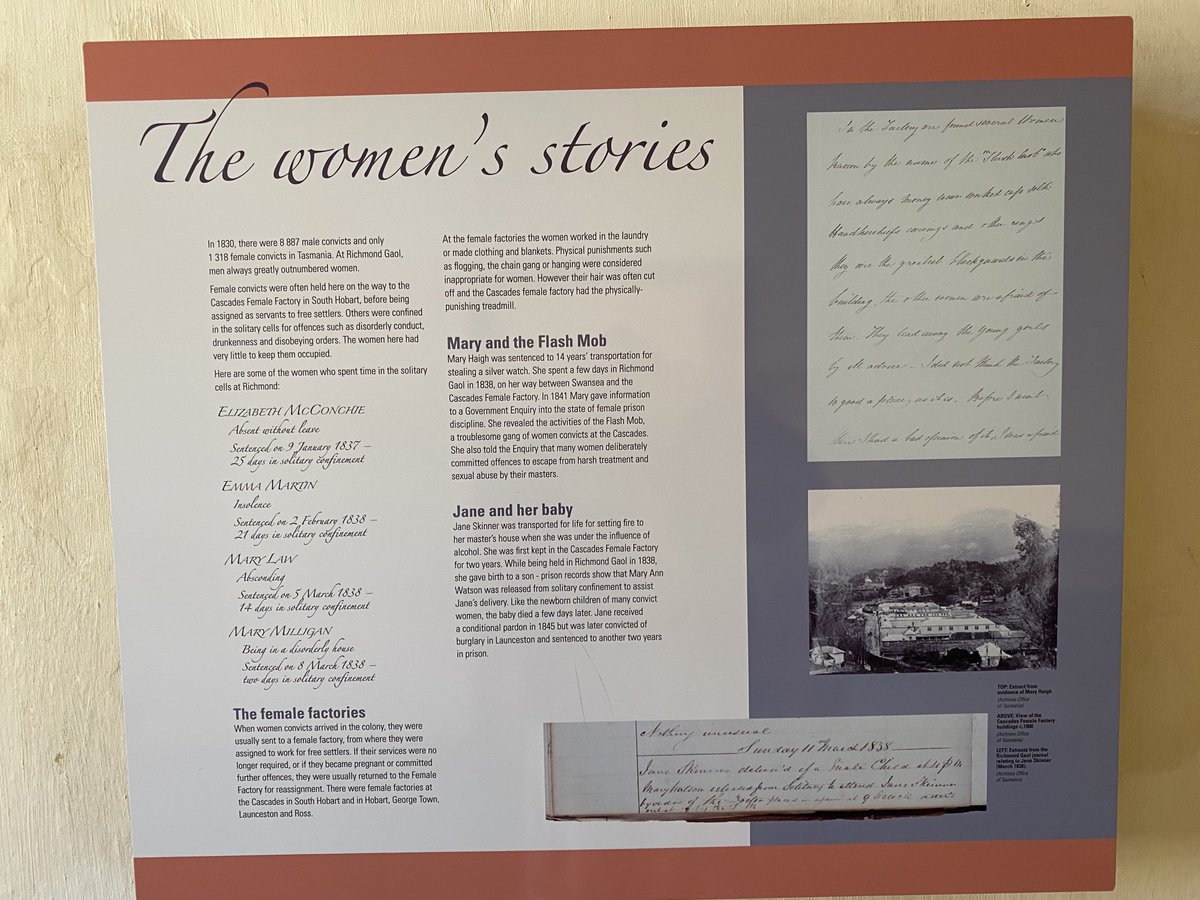 The women's stories
In 1830, there were 8 887 male convicts and only
1 318 female convicts in Tasmania. At Richmond Gaol,
men always greatly outnumbered women.
Female convicts were often held here on the way to the
Cascades Female Factory in South Hobart, before being
assigned as servants to free settlers. Others were confined
in the solitary cells for offences such as disorderly conduct,
drunkenness and disobeying orders. The women here had
very little to keep them occupied.
Here are some of the women who spent time in the solitary
cells at Richmond:
ELIZABETH MCCONCHIE
Absent without leave
Sentenced on 9 January 1837 –
25 days in solitary confinement
EMMA MARTIN
Insolence
Sentenced on 2 February 1838 –
21 days in solitary confinement
MARY LAW
Absconding
Sentenced on 5 March 1838 –
14 days in solitary confinement
MARY MILLIGAN
Being in a disorderly house
Sentenced on 8 March 1838 –
two days in solitary confinement
The female factories
When women convicts arrived in the colony, they were
usually sent to a female factory, from where they were
assigned to work for free settlers. If their services were no
longer required, or if they became pregnant or committed
further offences, they were usually returned to the Female
Factory for reassignment. There were female factories at
the Cascades in South Hobart and in Hobart, George Town,
Launceston and Ross.
At the female factories the women worked in the laundry
or made clothing and blankets. Physical punishments such
as flogging, the chain gang or hanging were considered
inappropriate for women. However their hair was often cut
off and the Cascades female factory had the physically-
punishing treadmill.
Mary and the Flash Mob
Mary Haigh was sentenced to 14 years' transportation for
stealing a silver watch. She spent a few days in Richmond
Gaol in 1838, on her way between Swansea and the
Cascades Female Factory. In 1841 Mary gave information
to a Government Enquiry into the state of female prison
discipline. She revealed the activities of the Flash Mob,
a troublesome gang of women convicts at the Cascades.
She also told the Enquiry that many women deliberately
committed offences to escape from harsh treatment and
sexual abuse by their masters.
Jane and her baby
Jane Skinner was transported for life for setting fire to
her master's house when she was under the influence of
alcohol. She was first kept in the Cascades Female Factory
for two years. While being held in Richmond Gaol in 1838,
she gave birth to a son - prison records show that Mary Ann
Watson was released from solitary confinement to assist
Jane's delivery. Like the newborn children of many convict
women, the baby died a few days later. Jane received
a conditional pardon in 1845 but was later convicted of
burglary in Launceston and sentenced to another two years
in prison.
In the Factory are found several Women
known by the name of the "Flash mob" who
have always money wear worked caps silk
Handkerchiefs earrings and other rings
they are the greatest blackguards in the
building. the other women are afraid of
them. They lead away the young girls
by ill advice - I did not think the Factory
so good a place, as it is. Before I went
there I had a bad opinion of it, I was afraid
TOP: Extract from
evidence of Mary Haigh
(Archives Office
of Tasmania)
ABOVE: View of the
Cascades Female Factory
buildings c.1900
(Archives Office
of Tasmania)
LEFT: Extracts from the
Richmond Gaol journal
relating to Jane Skinner
(March 1838).
(Archives Office
of Tasmania)
Nothing unusual
Sunday 11th March 1838
Jane Skinner deliver'd of a Male Child at
Mary Watson released from Solitary to attend Jane Skinner
by order of the Doctor placed in again at 9 O'Clock